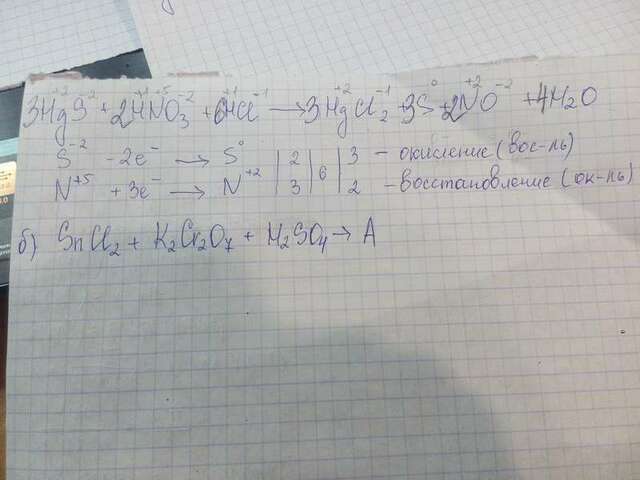 3Hg⁺²S⁻² + 2H⁺¹N⁺⁵O₃⁻² + 6H⁺¹Cl⁻¹ → 3Hg⁺²Cl₂⁻¹ + 3S⁰ + 2N⁺²O⁻² + 4H₂O
S⁻² - 2e⁻ → S⁰ | 2 | 6 | 3 – окисление (вос-ль)
N⁺⁵ + 3e⁻ → N⁺² | 3 | | 2 – восстановление (ок-ль)
б) SnCl₂ + K₂Cr₂O₇ + H₂SO₄ → A